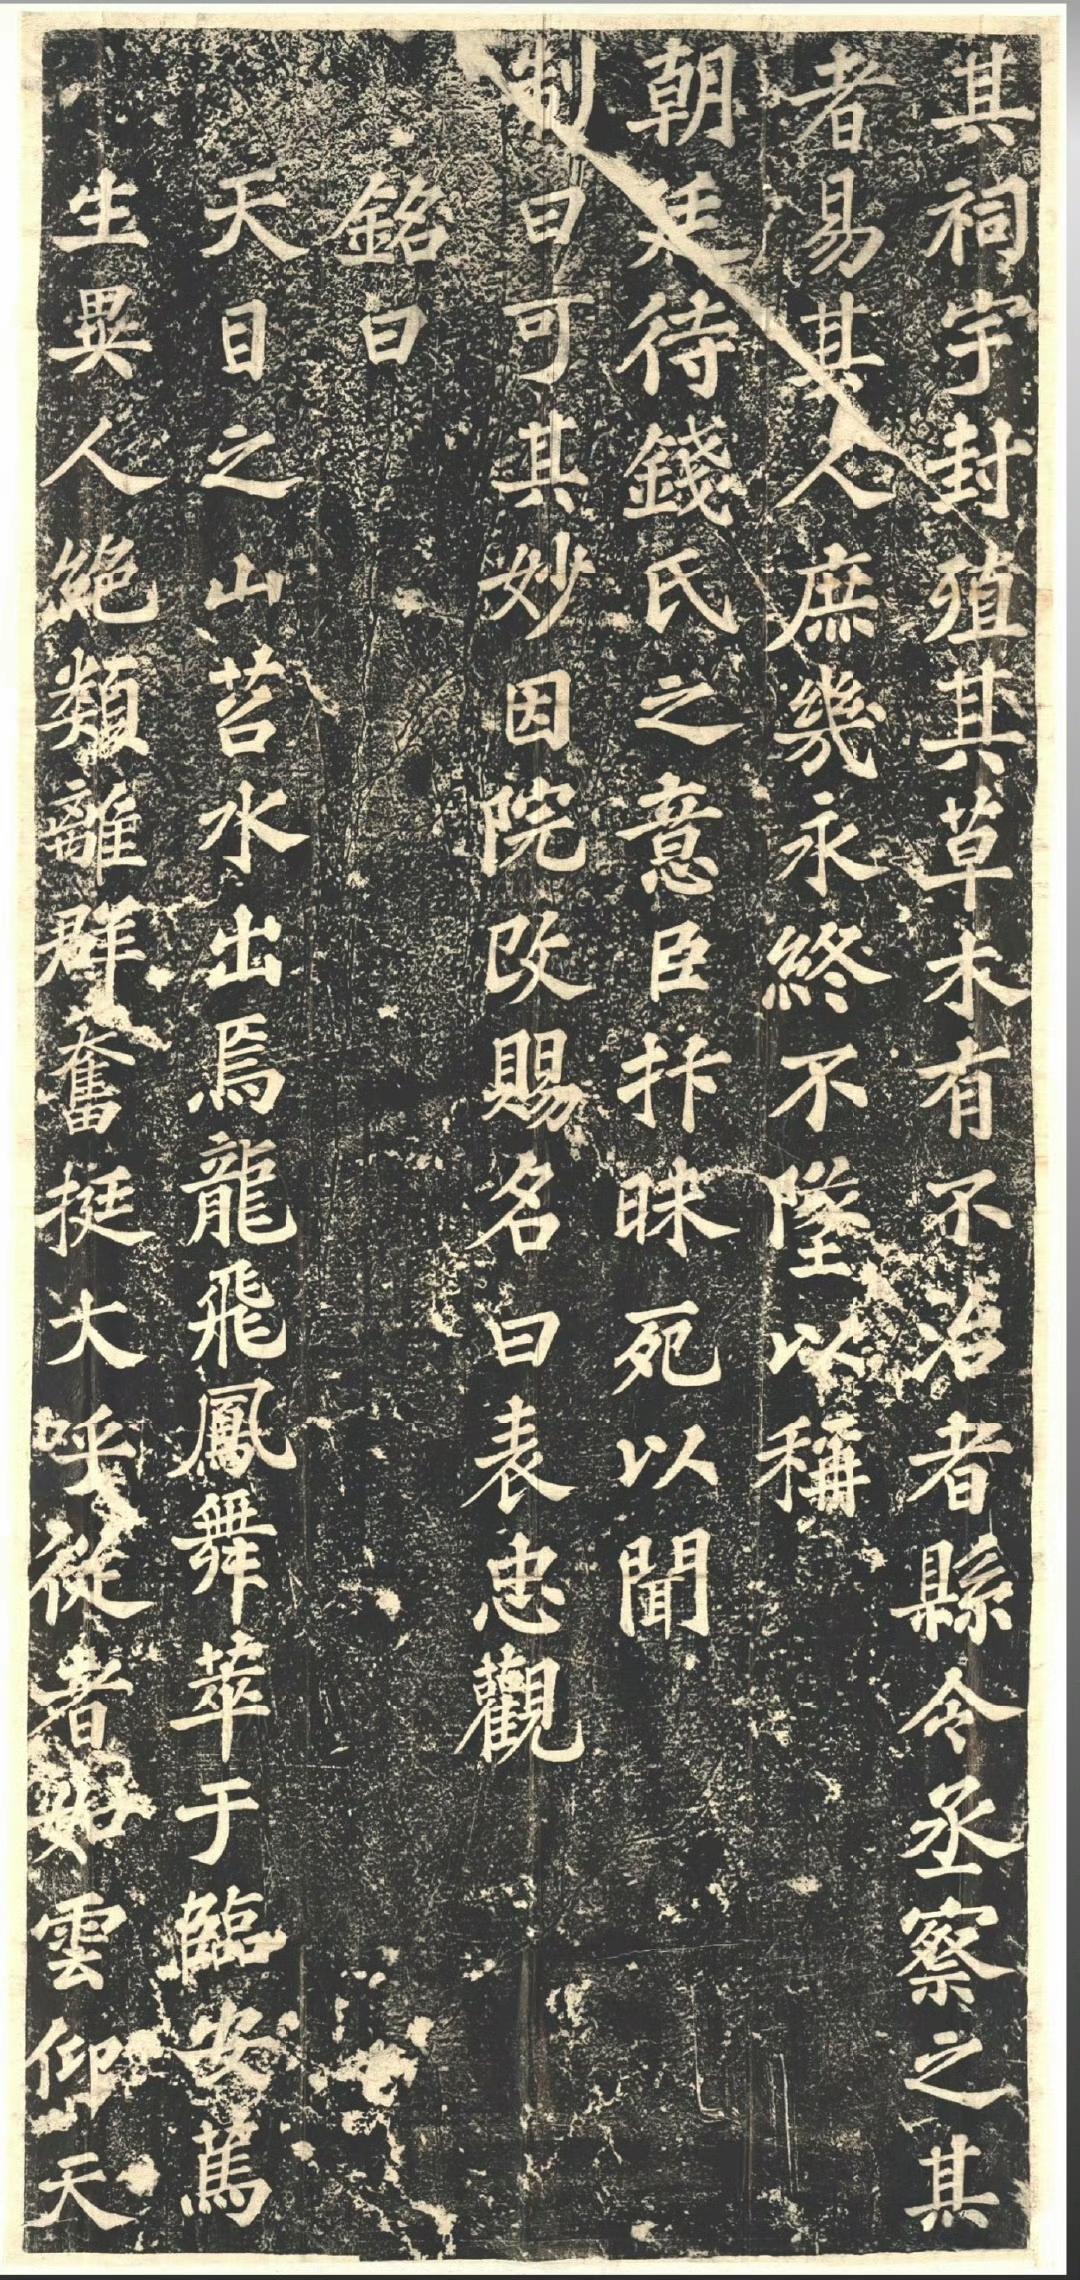 其祠宇封殖其草木有不治者縣令丞察之其
者易其人庶幾永終不墜以稱
朝廷待錢氏之意臣抃昧死以聞
制曰可其妙因院改賜名曰表忠觀
銘曰
天目之山苕水出焉龍飛鳳舞萃于臨安篤
生異人絕類離群奮挺大呼從者如雲仰天